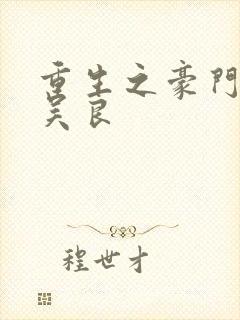 重生之豪門
吴良
程世才